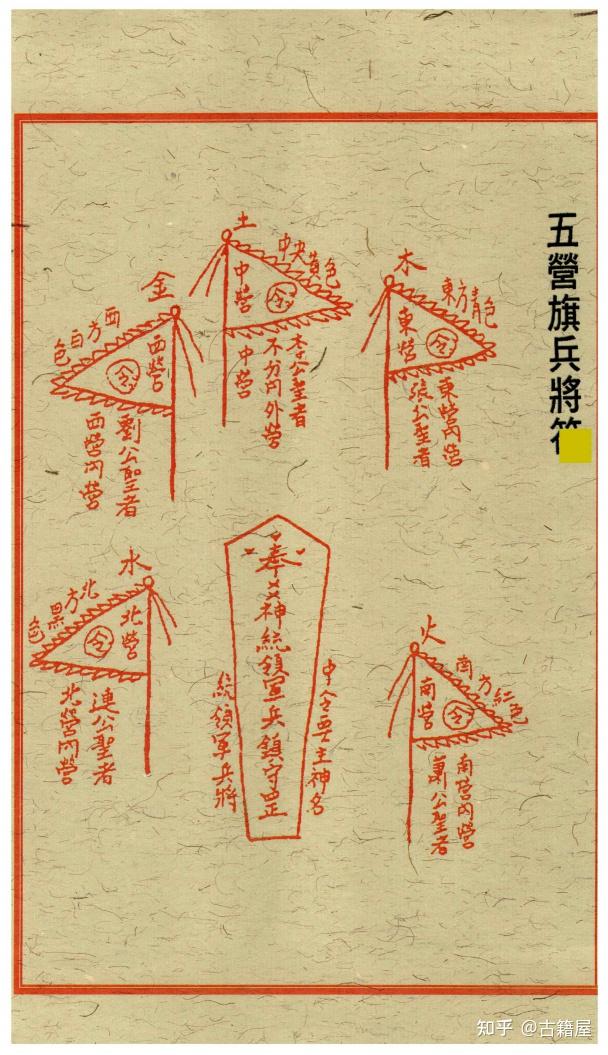 五營旗兵將符
木
東方青色
東營
令
東營內營
張公聖者
土
中央黃色
中營
令
李公聖者
不分內外營
中營
金
西方白色
西營
令
劉公聖者
西營內營
火
南方紅色
南營
令
南營內營
蕭公聖者
中令要主神名
奉
神統領軍兵鎮守罡
統領軍兵將
水
北方黑色
北營
令
連公聖者
北營內營
知乎 @古籍屋